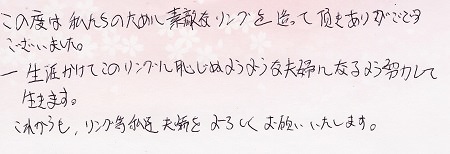 この度は私たちのために素敵なリングを造って頂きありがとうございました。
一生涯かけてこのリングに恥じぬようような夫婦になるよう努力して
生きます。
これからも、リング等私達夫婦をよろしくお願いいたします。